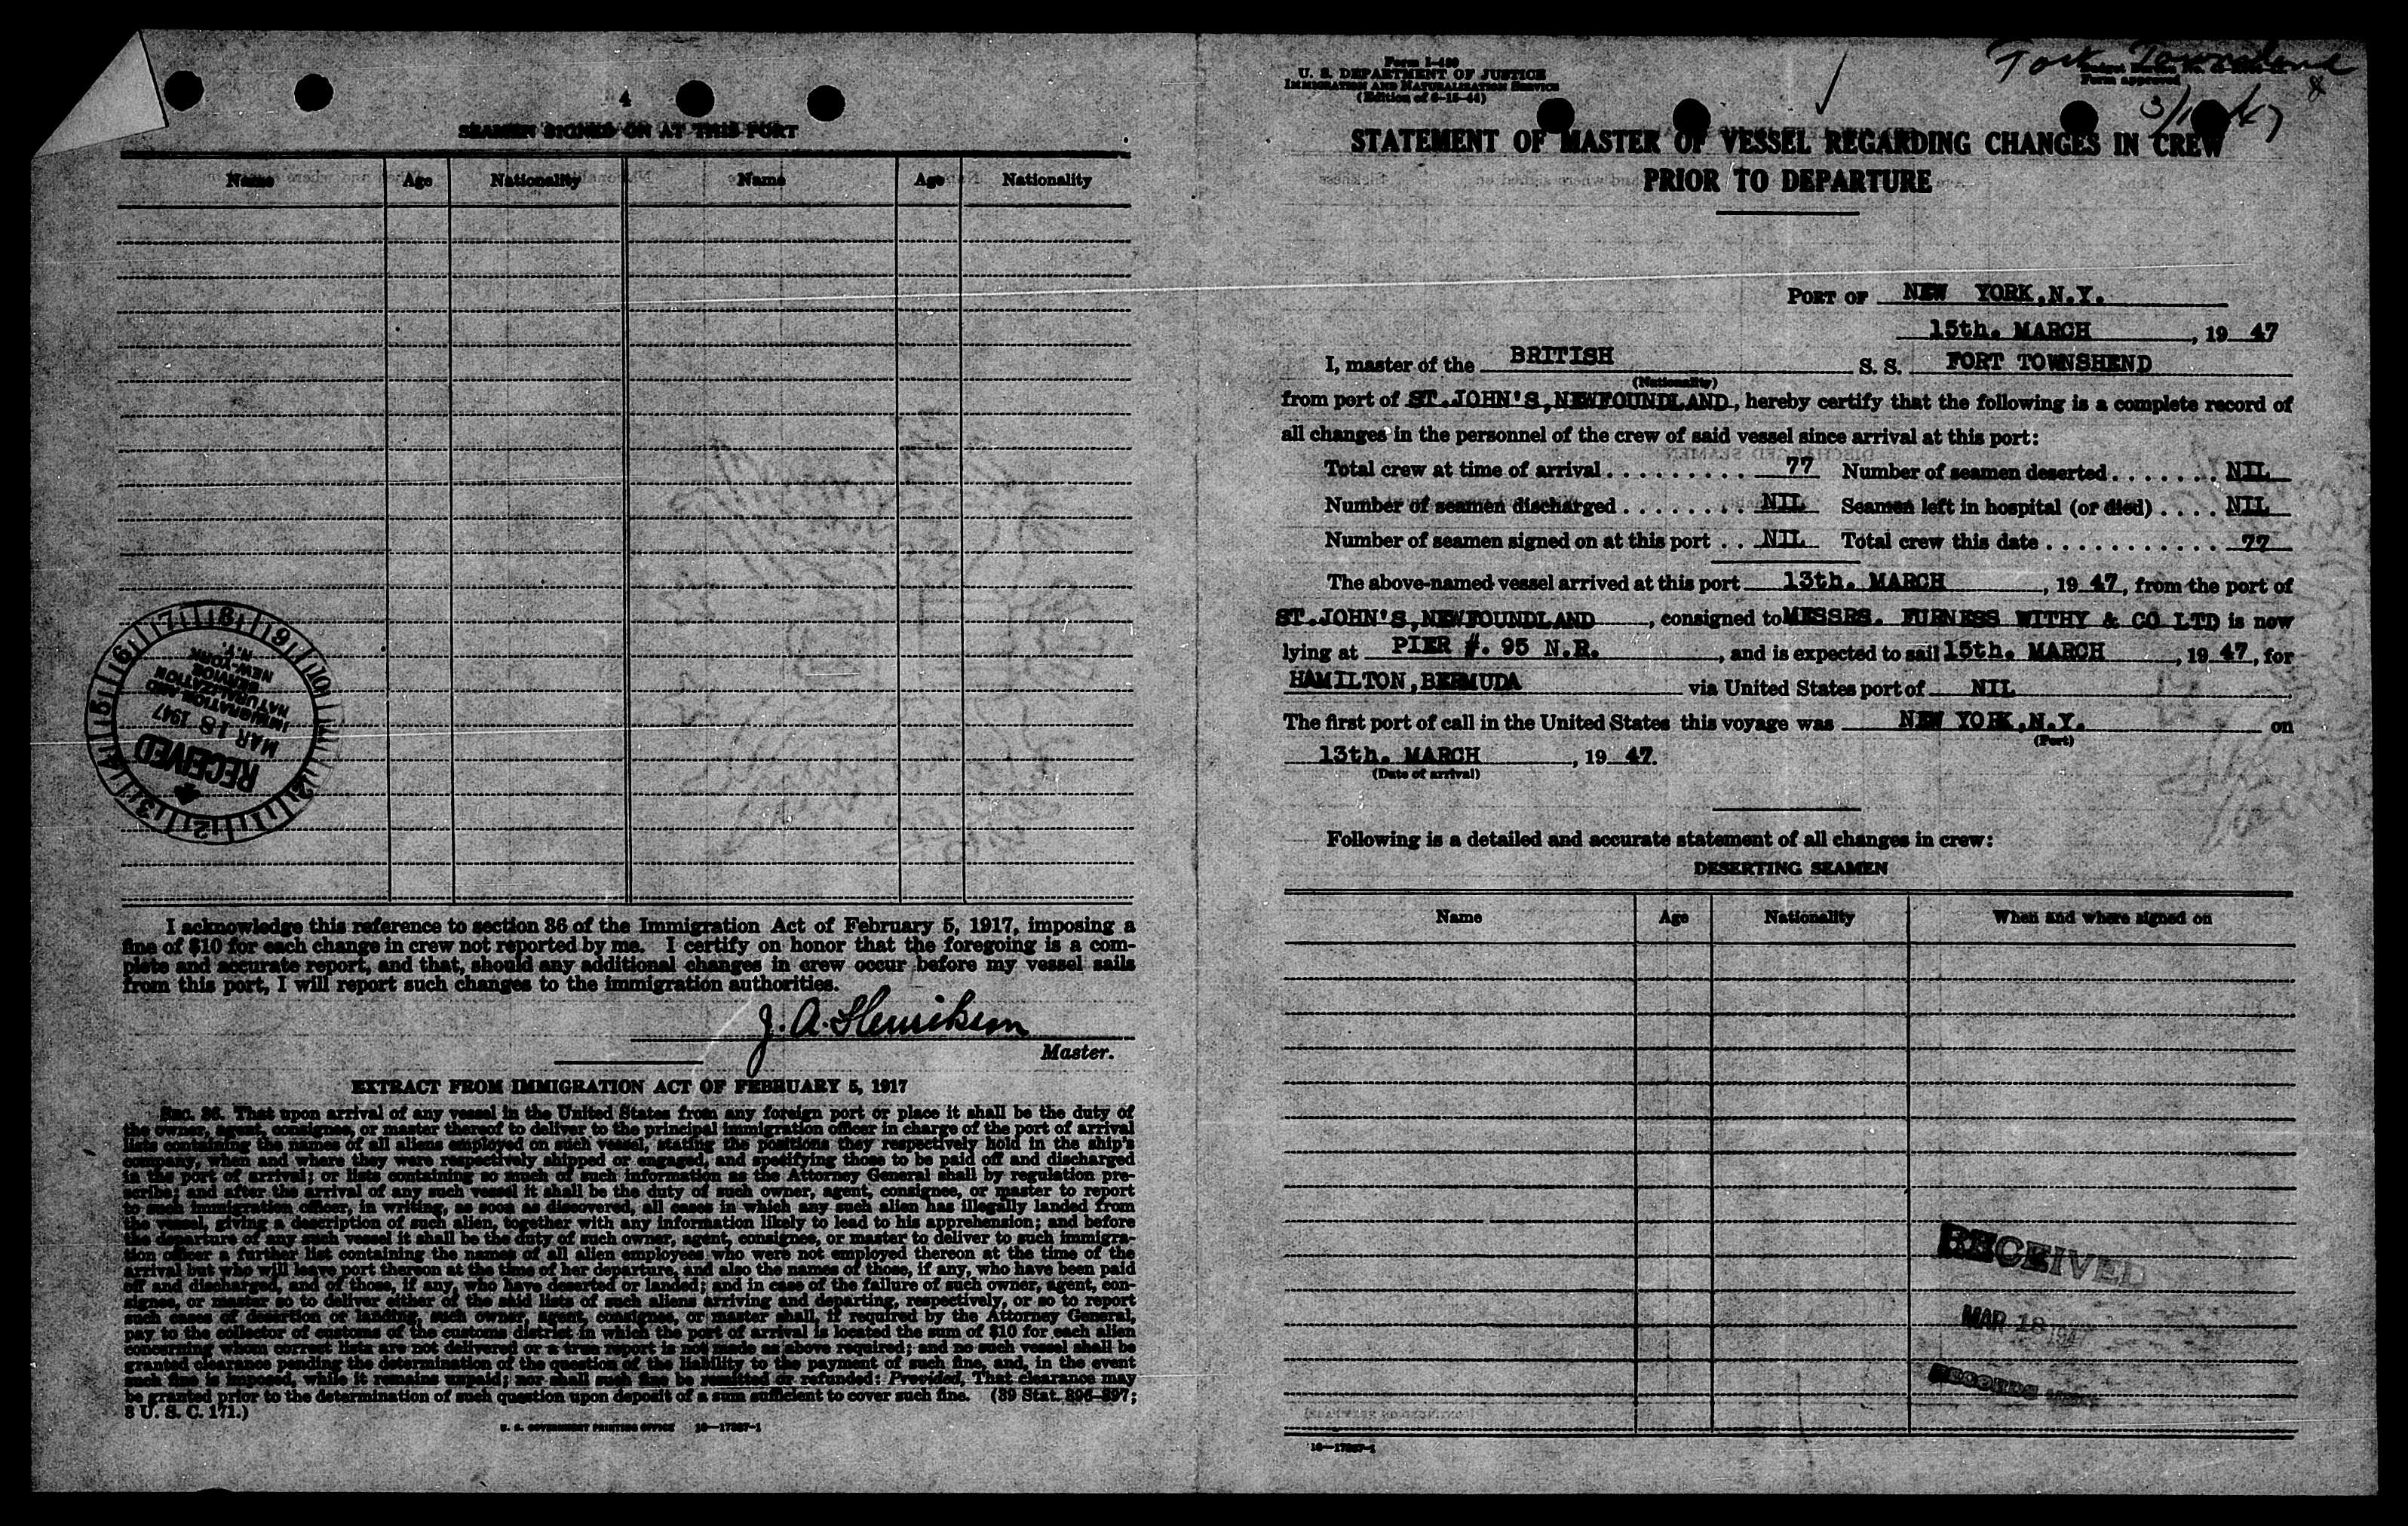 4
SEAMEN SIGNED ON AT THIS PORT
Name Age Nationality Name Age Nationality
RECEIVED
MAR 18 1947
IMMIGRATION AND
NATURALIZATION
SERVICE
NEW-YORK
N.Y.
I acknowledge this reference to section 36 of the Immigration Act of February 5, 1917, imposing a
fine of $10 for each change in crew not reported by me. I certify on honor that the foregoing is a com-
plete and accurate report, and that, should any additional changes in crew occur before my vessel sails
from this port, I will report such changes to the immigration authorities.
J. A. Henriksen
Master.
EXTRACT FROM IMMIGRATION ACT OF FEBRUARY 5, 1917
SEC. 36. That upon arrival of any vessel in the United States from any foreign port or place it shall be the duty of
the owner, agent, consignee, or master thereof to deliver to the principal immigration officer in charge of the port of arrival
lists containing the names of all aliens employed on such vessel, stating the positions they respectively hold in the ship's
company, when and where they were respectively shipped or engaged, and specifying those to be paid off and discharged
in the port of arrival; or lists containing so much of such information as the Attorney General shall by regulation pre-
scribe; and after the arrival of any such vessel it shall be the duty of such owner, agent, consignee, or master to report
to such immigration officer, in writing, as soon as discovered, all cases in which any such alien has illegally landed from
the vessel, giving a description of such alien, together with any information likely to lead to his apprehension; and before
the departure of any such vessel it shall be the duty of such owner, agent, consignee, or master to deliver to such immigra-
tion officer a further list containing the names of all alien employees who were not employed thereon at the time of the
arrival but who will leave port thereon at the time of her departure, and also the names of those, if any, who have been paid
off and discharged, and of those, if any, who have deserted or landed; and in case of the failure of such owner, agent, con-
signee, or master so to deliver either of the said lists of such aliens arriving and departing, respectively, or so to report
such cases of desertion or landing, such owner, agent, consignee, or master shall, if required by the Attorney General,
pay to the collector of customs of the customs district in which the port of arrival is located the sum of $10 for each alien
concerning whom correct lists are not delivered or a true report is not made as above required; and no such vessel shall be
granted clearance pending the determination of the question of the liability to the payment of such fine, and, in the event
such fine is imposed, while it remains unpaid; nor shall such fine be remitted or refunded: Provided, That clearance may
be granted prior to the determination of such question upon deposit of a sum sufficient to cover such fine. (39 Stat. 896-897;
8 U. S. C. 171.)
U. S. GOVERNMENT PRINTING OFFICE 16—17887-1
Form I-489
U. S. DEPARTMENT OF JUSTICE
IMMIGRATION AND NATURALIZATION SERVICE
(Edition of 6-15-44)
Fort Townshend
Form approved
STATEMENT OF MASTER OF VESSEL REGARDING CHANGES IN CREW
PRIOR TO DEPARTURE
PORT OF NEW YORK, N.Y.
15th. MARCH, 19 47
I, master of the BRITISH S. S. FORT TOWNSHEND
(Nationality)
from port of ST.JOHN'S,NEWFOUNDLAND, hereby certify that the following is a complete record of
all changes in the personnel of the crew of said vessel since arrival at this port:
Total crew at time of arrival . . . . . . . . . 77 Number of seamen deserted . . . . . . . NIL
Number of seamen discharged . . . . . . . . NIL Seamen left in hospital (or died) . . . . NIL
Number of seamen signed on at this port . . NIL Total crew this date . . . . . . . . . . . . 77
The above-named vessel arrived at this port 13th. MARCH, 19 47, from the port of
ST.JOHN'S,NEWFOUNDLAND, consigned to MESSRS. FURNESS WITHY & CO LTD is now
lying at PIER #. 95 N.R., and is expected to sail 15th. MARCH, 19 47, for
HAMILTON,BERMUDA via United States port of NIL
The first port of call in the United States this voyage was NEW YORK,N.Y. on
(Port)
13th. MARCH, 19 47.
(Date of arrival)
Following is a detailed and accurate statement of all changes in crew:
DESERTING SEAMEN
Name Age Nationality When and where signed on
RECEIVED
MAR 18 194
RECORDS
16—17887-1